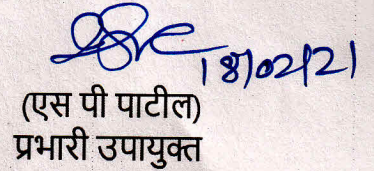 18/02/21
(एस पी पाटील)
प्रभारी उपायुक्त